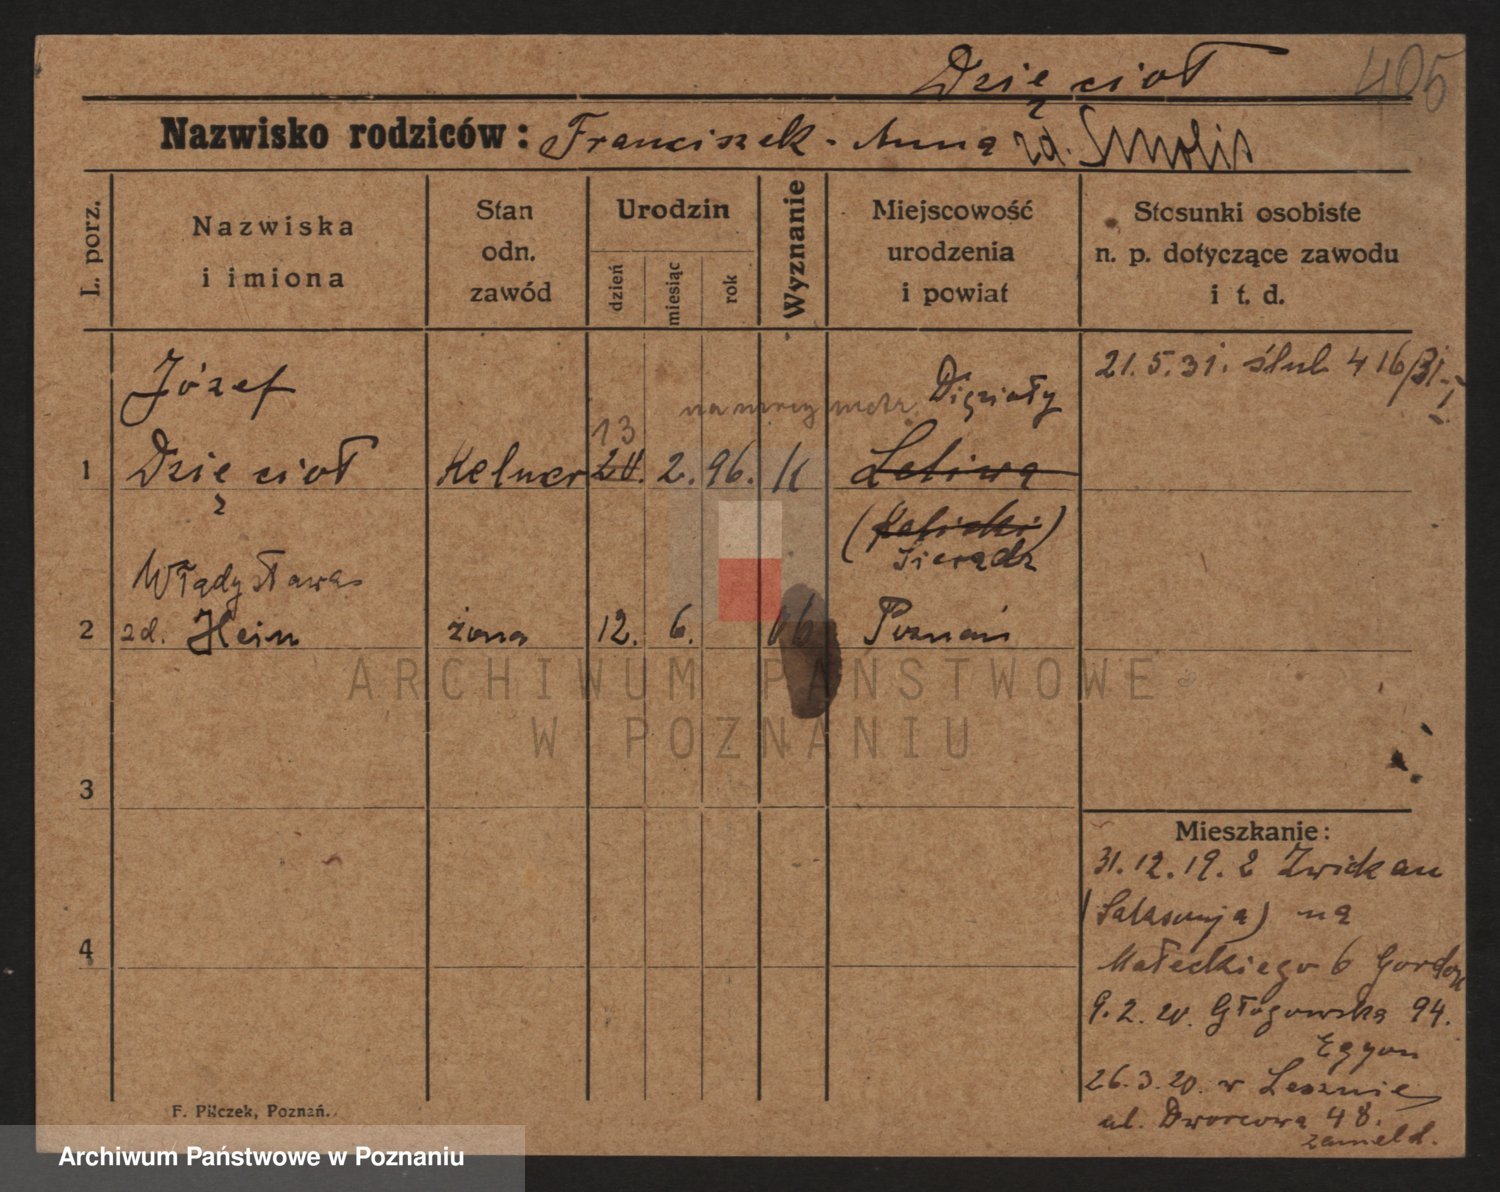 Dzięcioł 405
Nazwisko rodziców: Franciszek - Anna zd. Smolis
L. porz.
Nazwiska
i imiona
Stan
odn.
zawód
Urodzin
dzień
miesiąc
rok
Wyznanie
Miejscowość
urodzenia
i powiat
Stosunki osobiste
n. p. dotyczące zawodu
i t. d.
21. 5. 31. ślub 416/31.
Józef
na mocy metr.
13
1 Dzięcioł Kelner 2. 96. K
(Kaliski)
Sieradz
Władysława
2 zd. Hein żona 12. 6. 06 Poznań
3
4
Mieszkanie:
31. 12. 19. z Zwickau
na
Małeckiego 6
9. 2. 20. Głogowska 94.
26. 3. 20. w Lesznie
ul. Dworcowa 48.
zameld.
F. Pilczek, Poznań.
ARCHIWUM PAŃSTWOWE
W POZNANIU
Archiwum Państwowe w Poznaniu